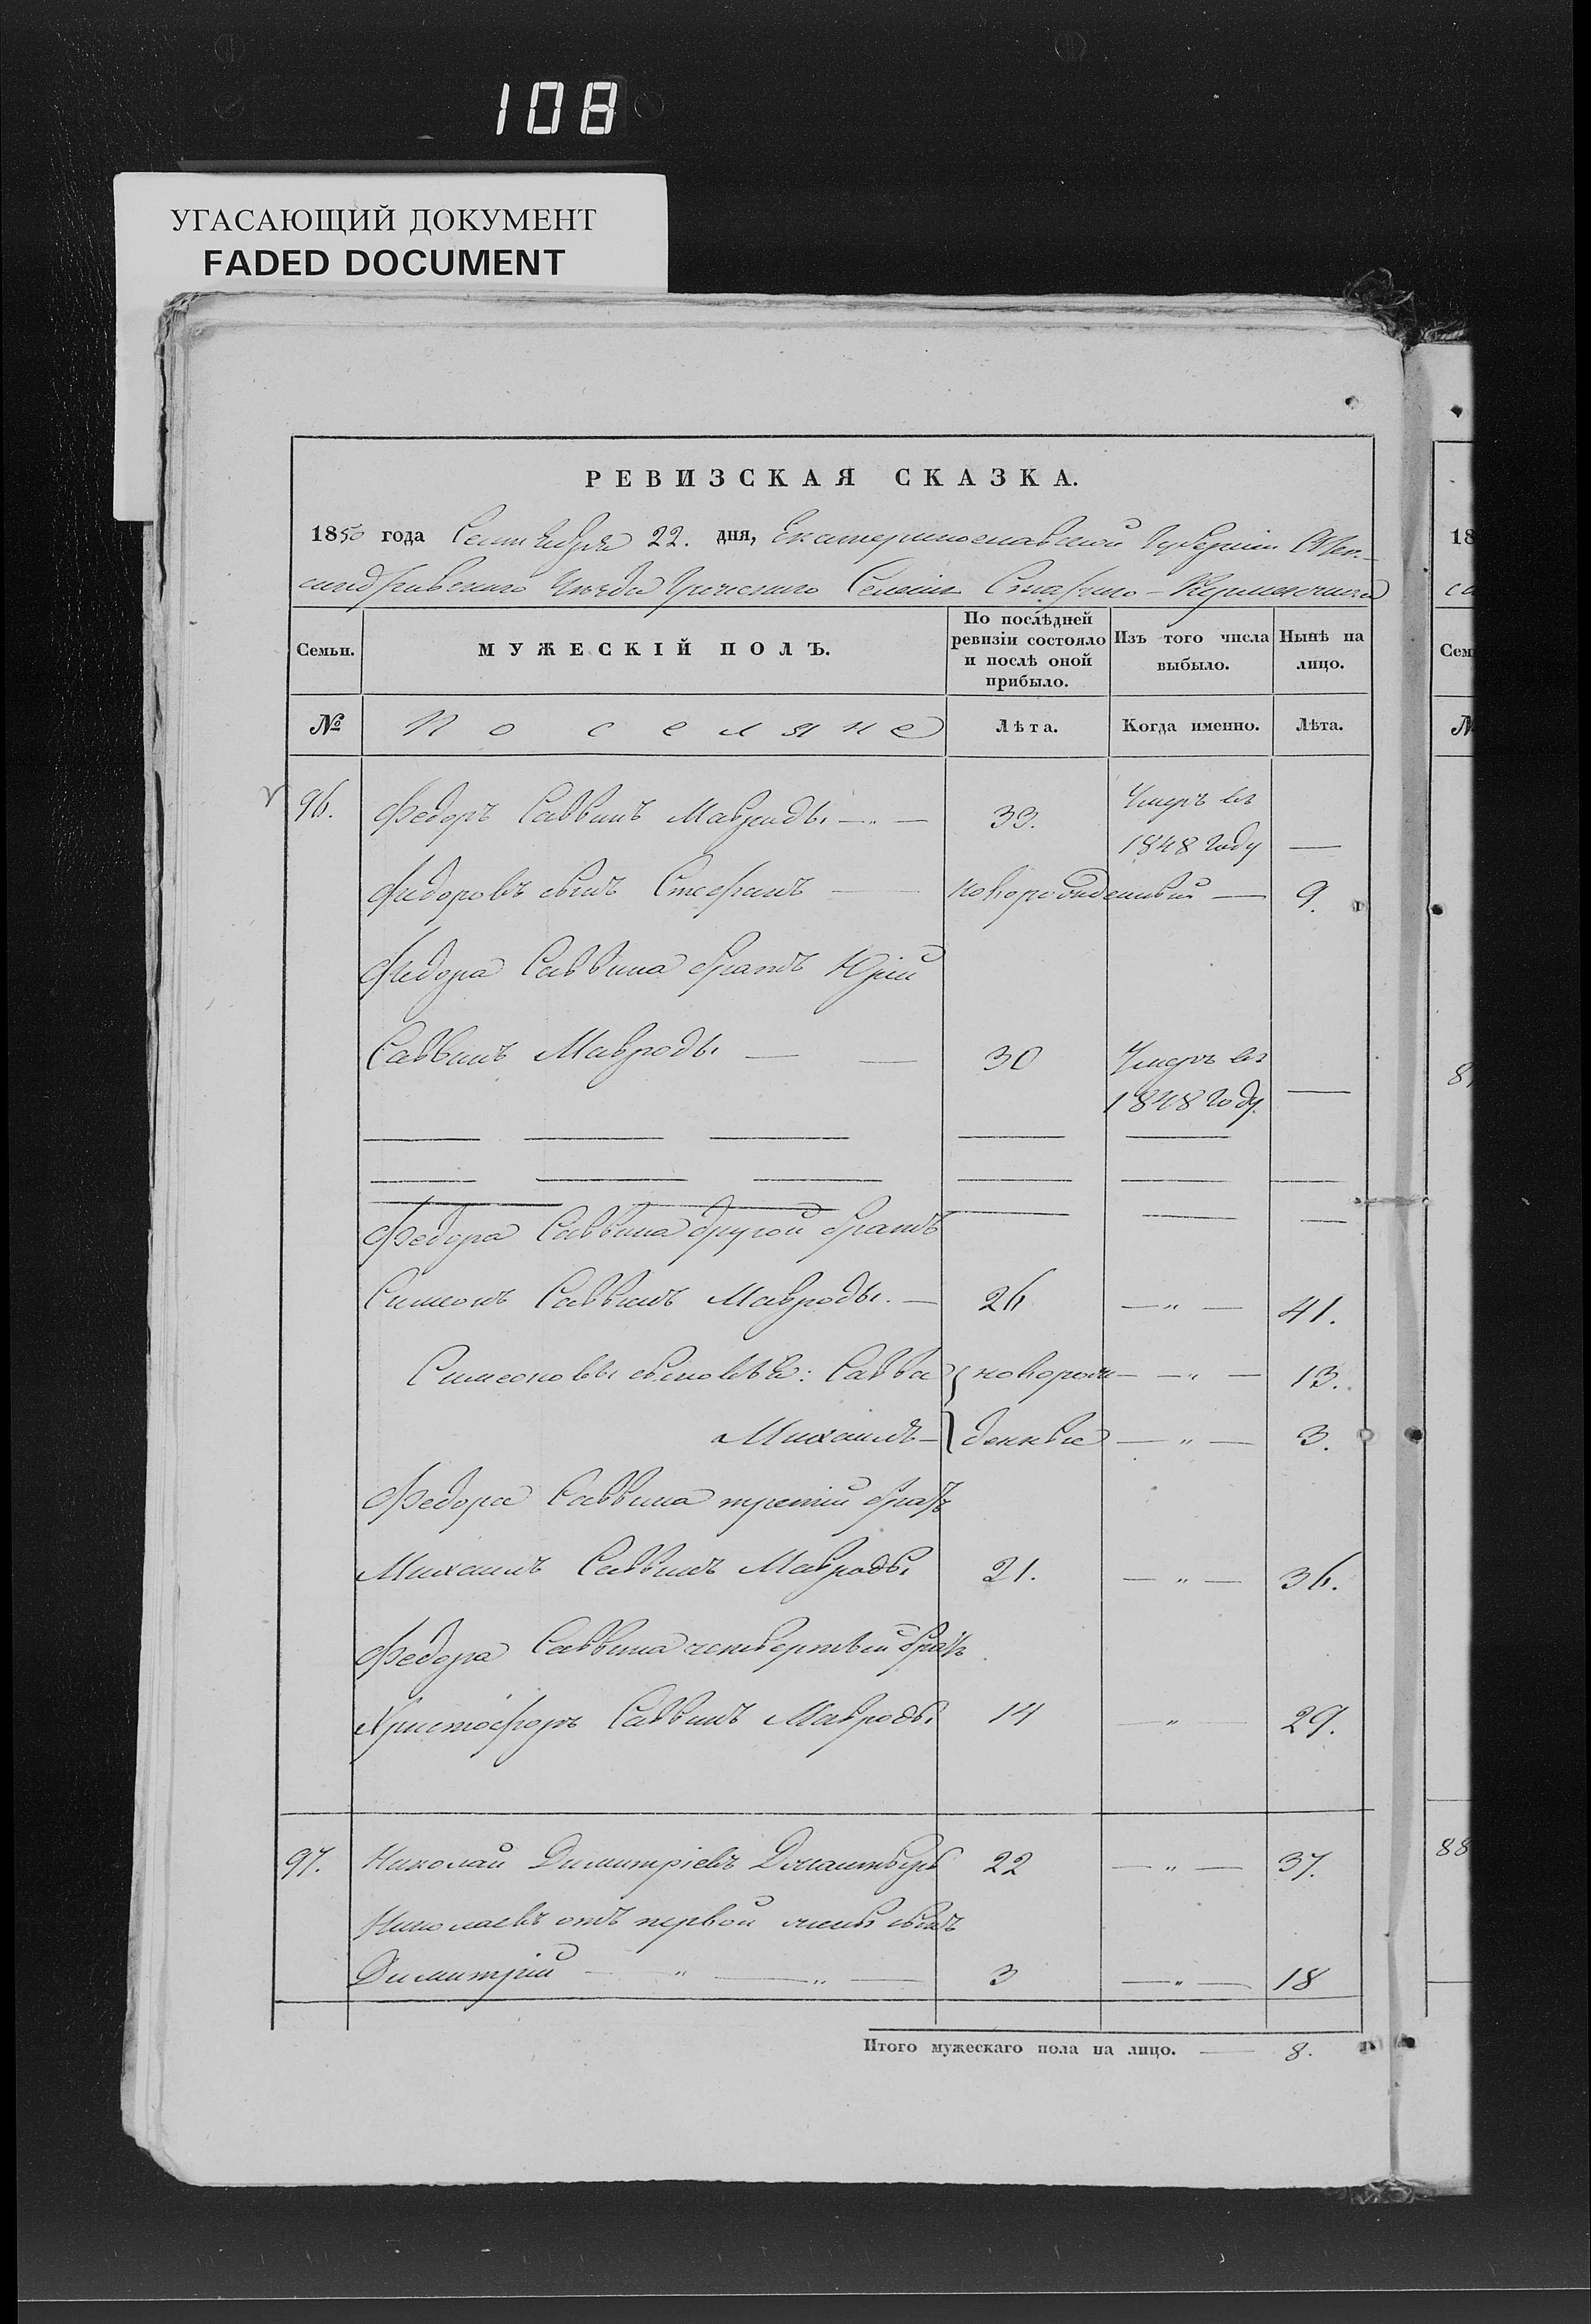 108
УГАСАЮЩИЙ ДОКУМЕНТ
FADED DOCUMENT
РЕВИЗСКАЯ СКАЗКА.
1850 года Сентября 22. дня, Екатеринославской Губерніи Алек-
сандровскаго Уѣзда Греческаго Селенія Стараго-Керменчика
Семьи. МУЖЕСКІЙ ПОЛЪ. По послѣдней ревизіи состояло и послѣ оной прибыло. Изъ того числа выбыло. Нынѣ на лицо.
№ Поселяне Лѣта. Когда именно. Лѣта.
96. Федоръ Саввинъ Мавроды — „ — 33. Умеръ въ
1848 году —
Федоровъ сынъ Стефанъ — новорожденный — 9.
Федора Саввина братъ Юрій
Саввинъ Мавроды — — 30 Умеръ въ
1848 году. —
Федора Саввина другой братъ
Симеонъ Саввинъ Мавроды. — 26 — „ — 41.
Симеоновы сыновья: Савва } новорож- — „ — 13.
Михаилъ — } денные — „ — 3.
Федора Саввина третій братъ
Михаилъ Саввинъ Мавроды 21. — „ — 36.
Федора Саввина четвертый братъ
Христофоръ Саввинъ Мавроды 14 — „ — 29.
97. Николай Димитріевъ 22 — „ — 37.
Николаевъ отъ первой жены сынъ
Димитрій — „ — „ — 3 — „ — 18
Итого мужескаго пола на лицо. — 8.
18
Сем
№
88